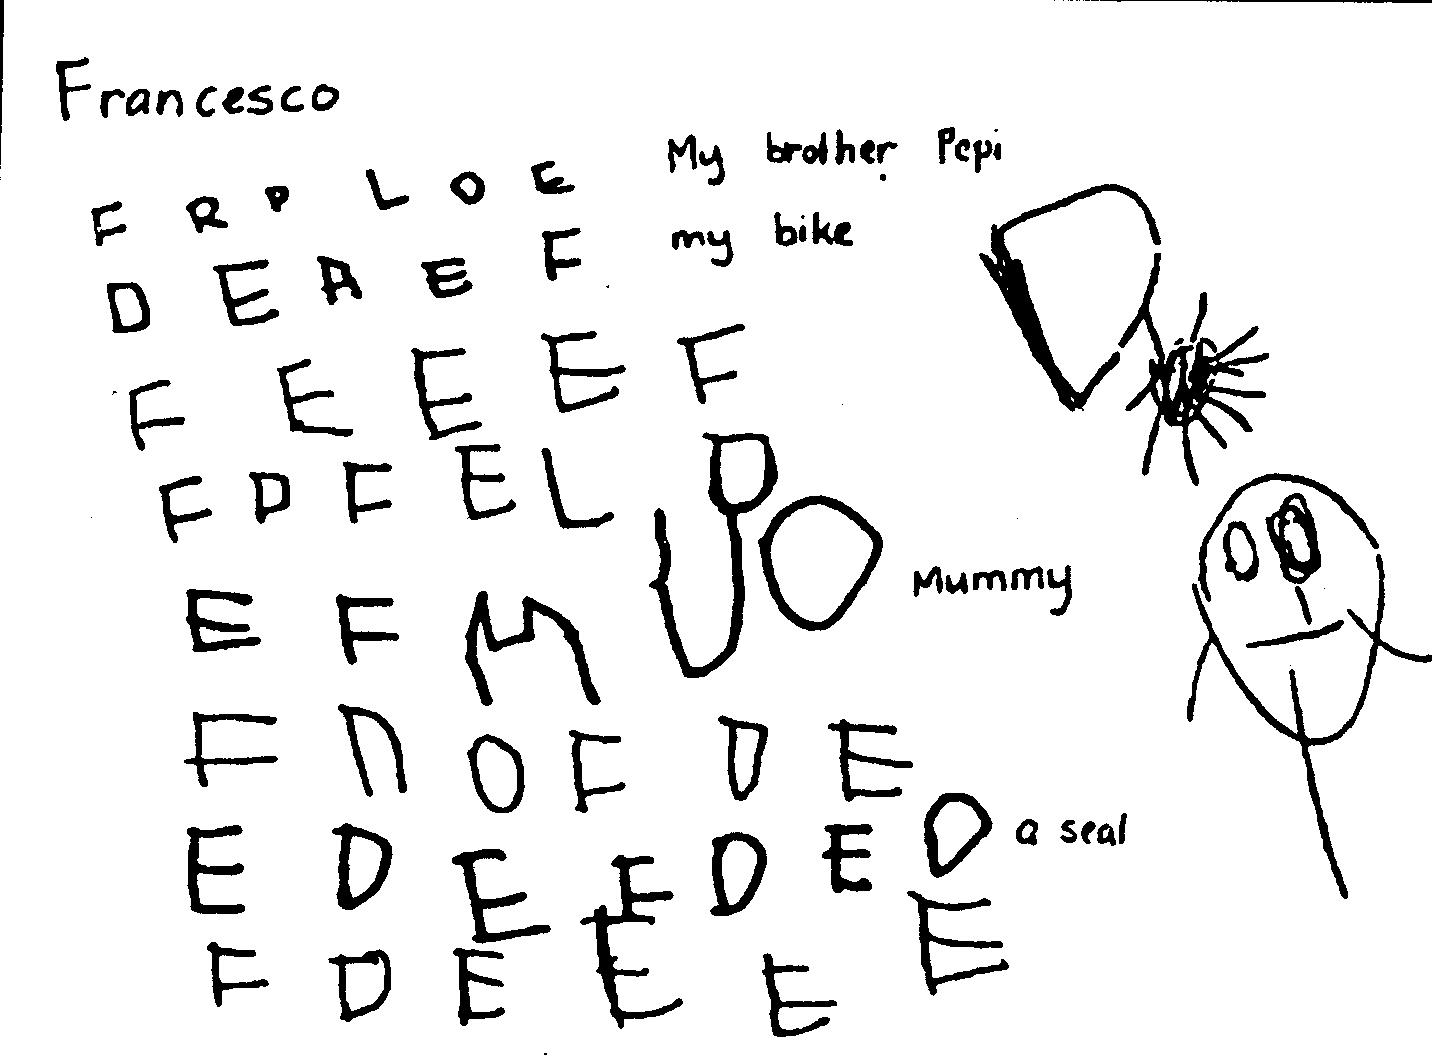 Francesco
F R P L O E My brother Pepi
D E A E F my bike
F E E E F
F D F E L D
E F M U O Mummy
F n O F D E
E D E E D E D a seal
F D E E E E